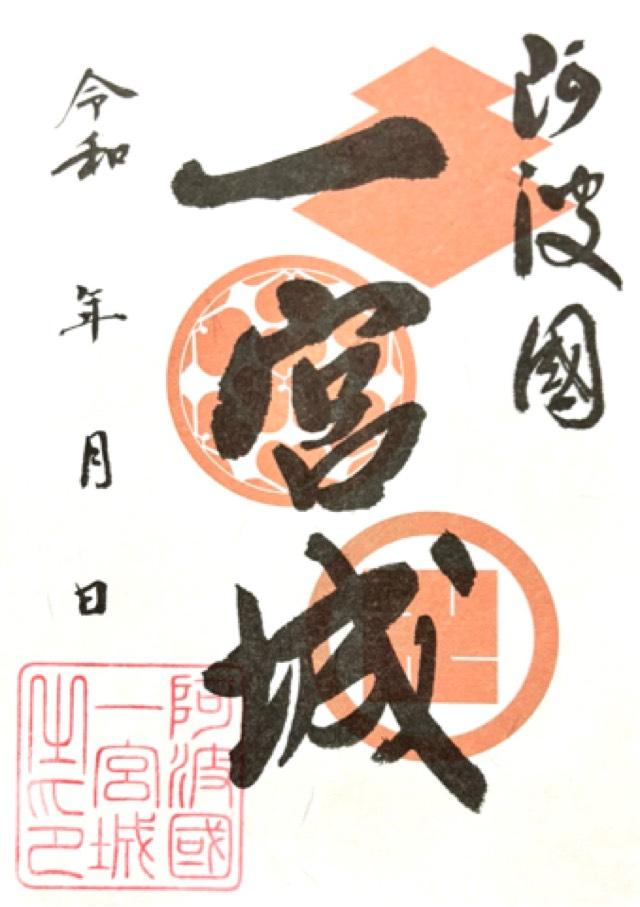 阿波國
一宮城
令和 年 月 日
阿波國
一宮城
之印